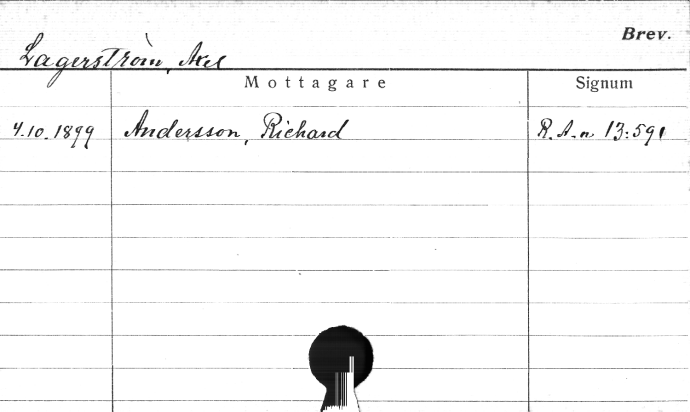 Brev.
Lagerström, Axel
Mottagare Signum
4.10.1899 Andersson, Richard R.A.n 13:591